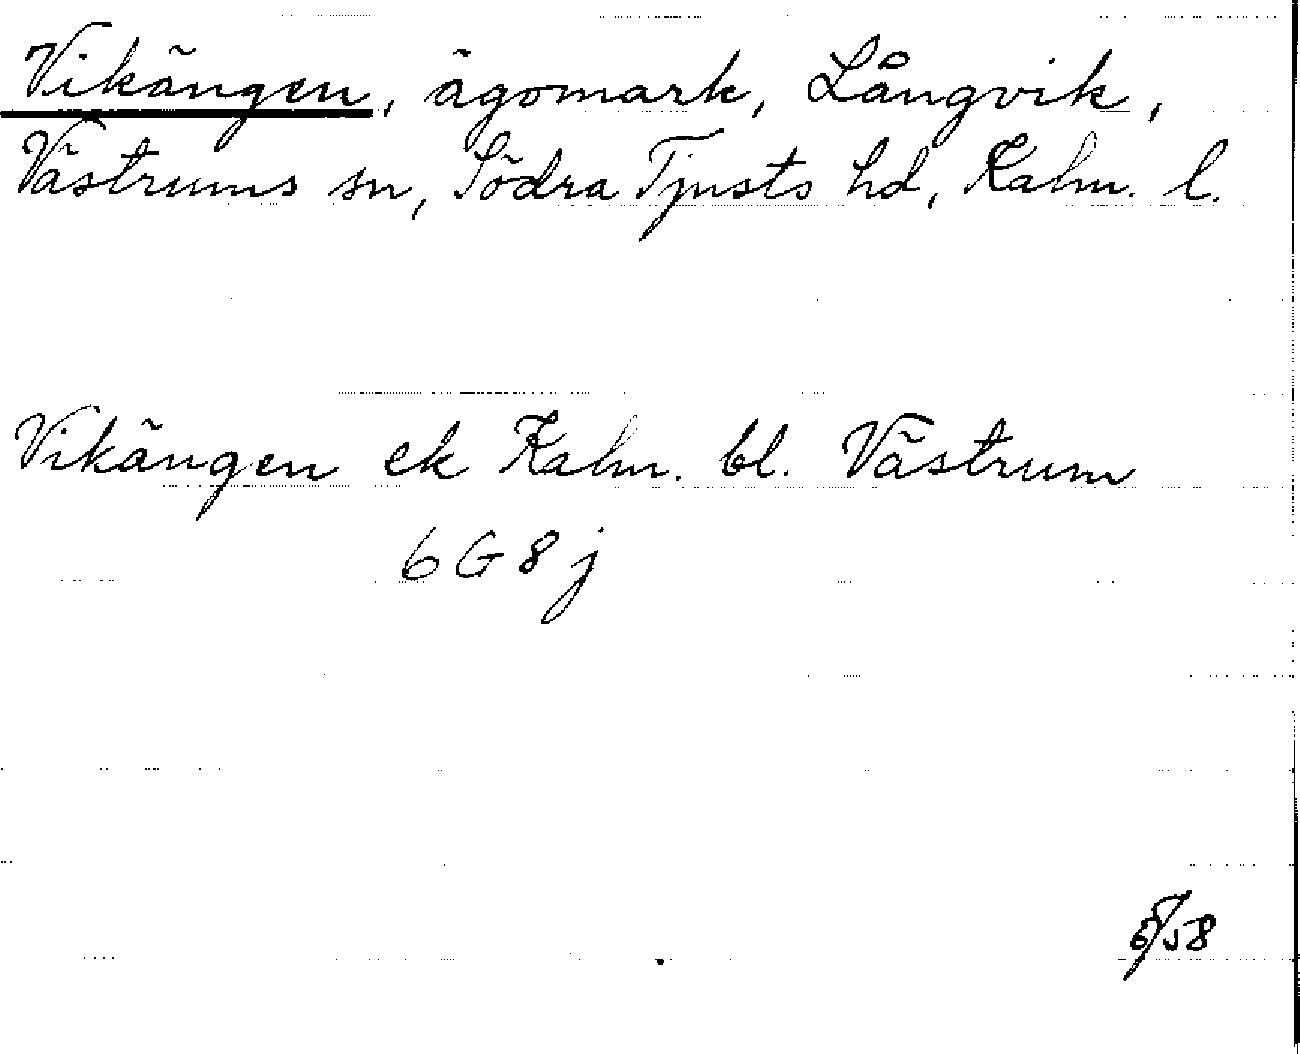 Vikängen, ägomark, Långvik,
Västrums sn, Södra Tjusts hd, Kalm. l.
Vikängen ek Kalm. bl. Västrum
6 G 8 j